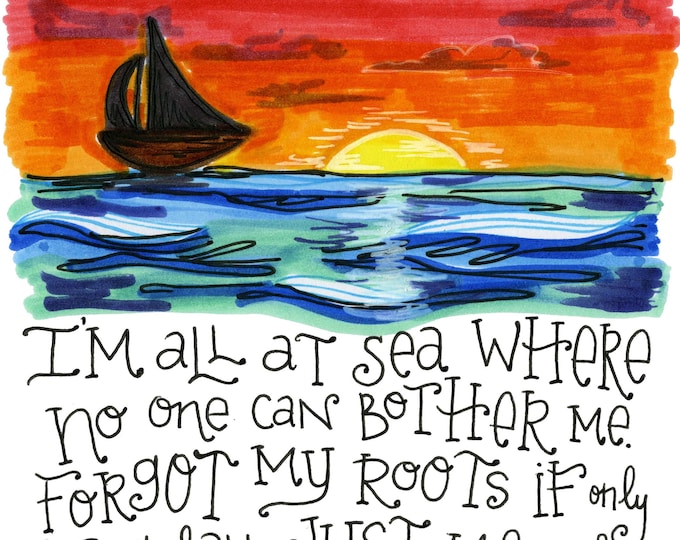 I'M all AT sea WHERE
no one can BOTHER Me.
FORGOT MY ROOTS iF only
JUST